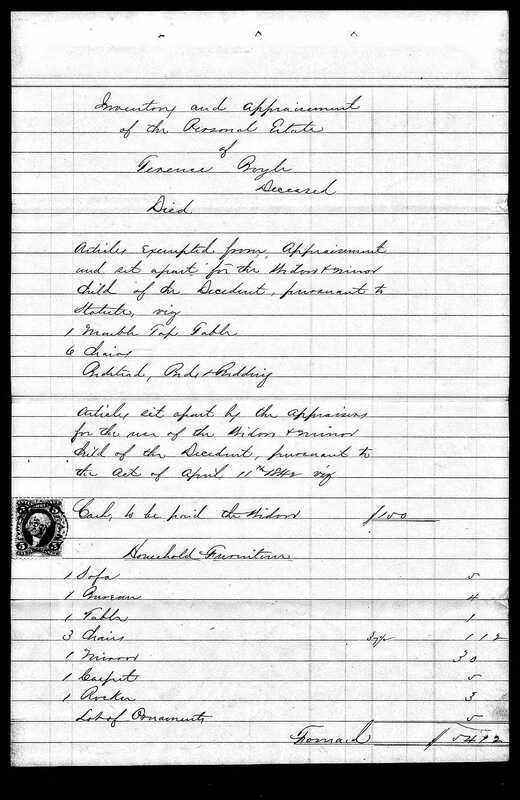 Inventory and Appraisement
of the Personal Estate
of
Terence Boyle
Deceased
Died
Articles Exempted from Appraisement
and set apart for the Widow & minor
Child of the Decedent, pursuant to
Statute, viz
1 Marble Top Table
6 Chairs
Bedstead, Bed, & Bedding
Articles set apart by the Appraisers
for the use of the Widow & minor
Child of the Decedent, pursuant to
the Act of April 11th 1842 viz
Cash, to be paid the Widow $150
Household Furniture
1 Sofa 5
1 Bureau 4
1 Table 1
3 Chairs 1 12
1 Mirror 30
1 Carpet 5
1 Rocker 3
Lot of Ornaments 5
Forward $ 54 12